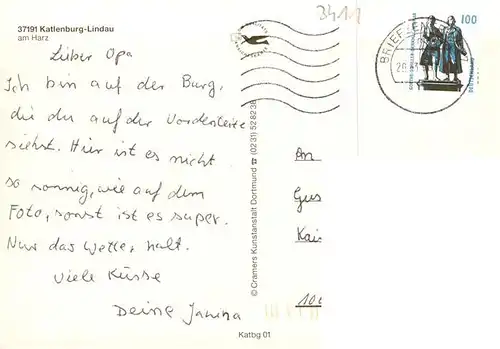 37191 Katlenburg-Lindau
am Harz
3411
Lieber Opa
Ich bin auf der Burg,
die du auf der Vorderseite
siehst. Hier ist es nicht
so sonnig, wie auf dem
Foto, sonst ist es super.
Nur das Wetter halt.
Viele Küsse
Deine Janina
© Cramers Kunstanstalt Dortmund (0231) 528238
Katbg 01
BRIEFZEN
100
DEUTSCHLAND
An
Gus
Kai
100